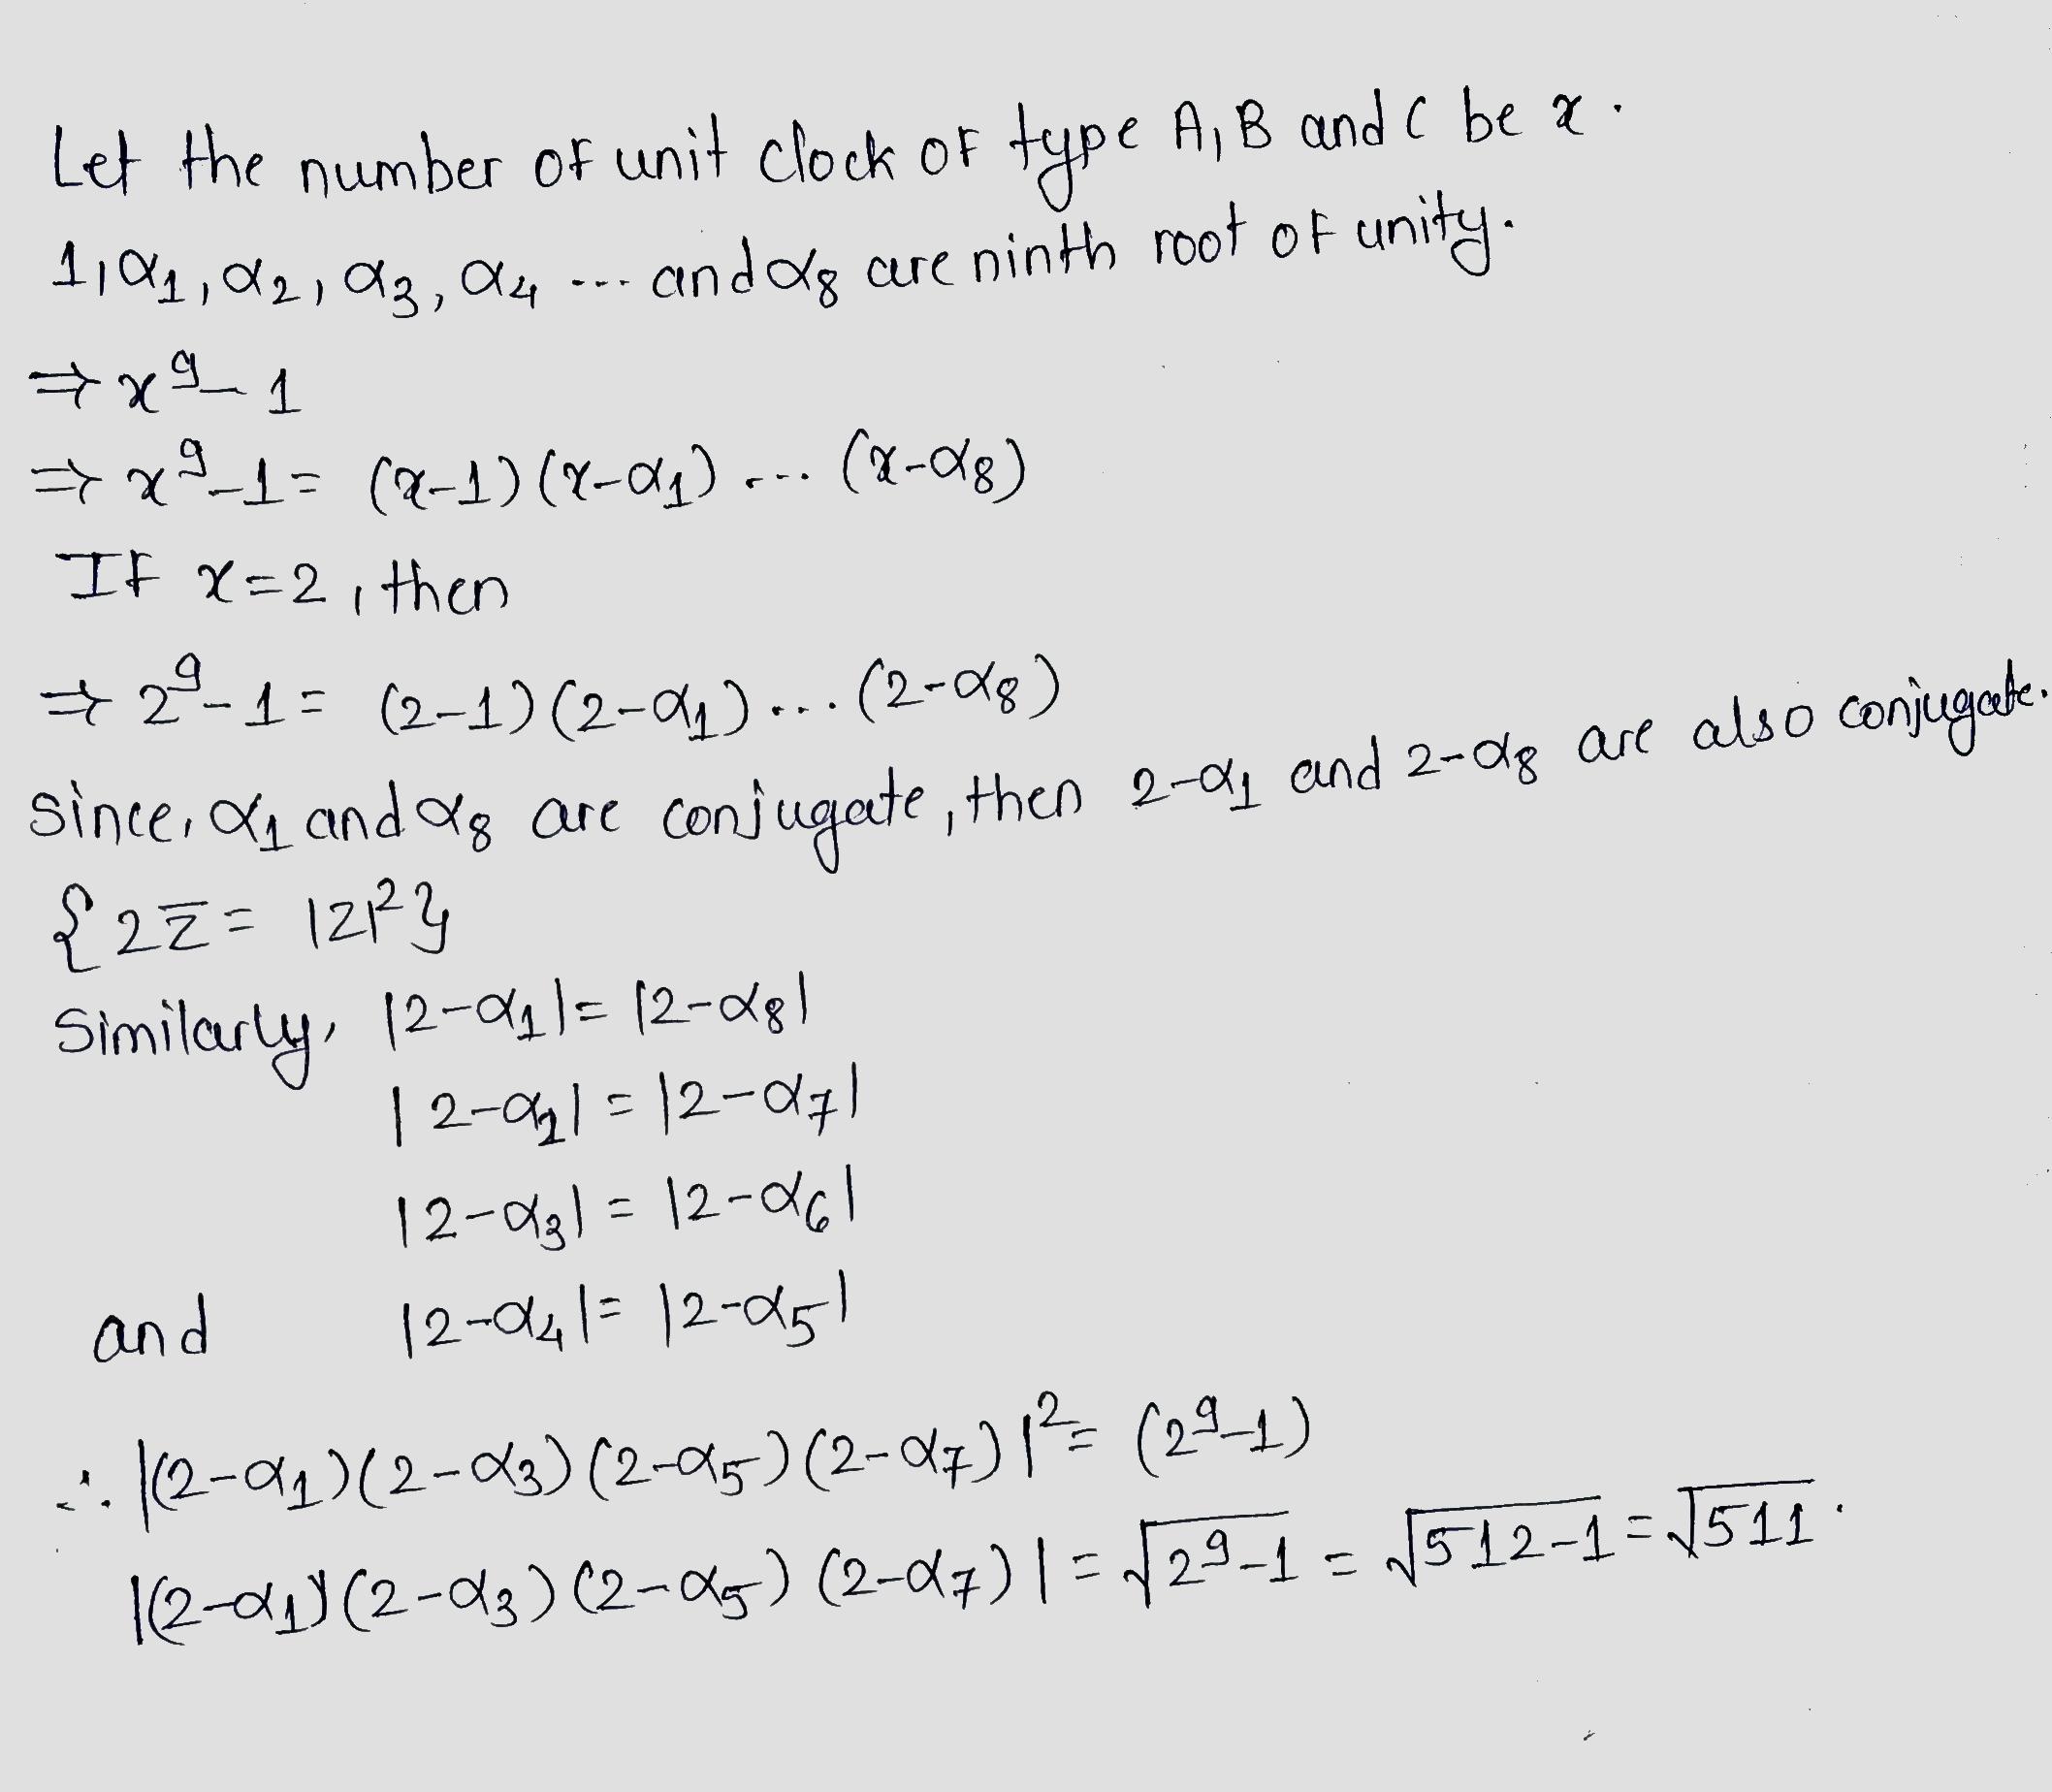 Let the number of unit clock of type A, B and C be x.
1, α₁, α₂, α₃, α₄ ... and α₈ are ninth root of unity.
⇒ x⁹ - 1
⇒ x⁹ - 1 = (x-1)(x-α₁) .... (x-α₈)
If x=2, then
⇒ 2⁹ - 1 = (2-1)(2-α₁) ... (2-α₈)
Since, α₁ and α₈ are conjugate, then 2-α₁ and 2-α₈ are also conjugate.
{2z̅ = |z|²}
Similarly, |2-α₁| = |2-α₈|
|2-α₂| = |2-α₇|
|2-α₃| = |2-α₆|
and |2-α₄| = |2-α₅|
∴ |(2-α₁)(2-α₃)(2-α₅)(2-α₇)|² = (2⁹-1)
|(2-α₁)(2-α₃)(2-α₅)(2-α₇)| = √2⁹-1 = √512-1 = √511.